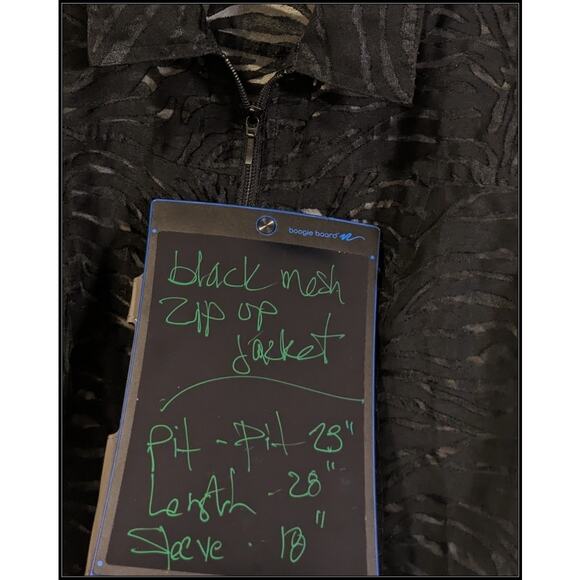 boogie board
black mesh
zip up
jacket
Pit - Pit 23"
Length - 28"
Sleeve - 18"